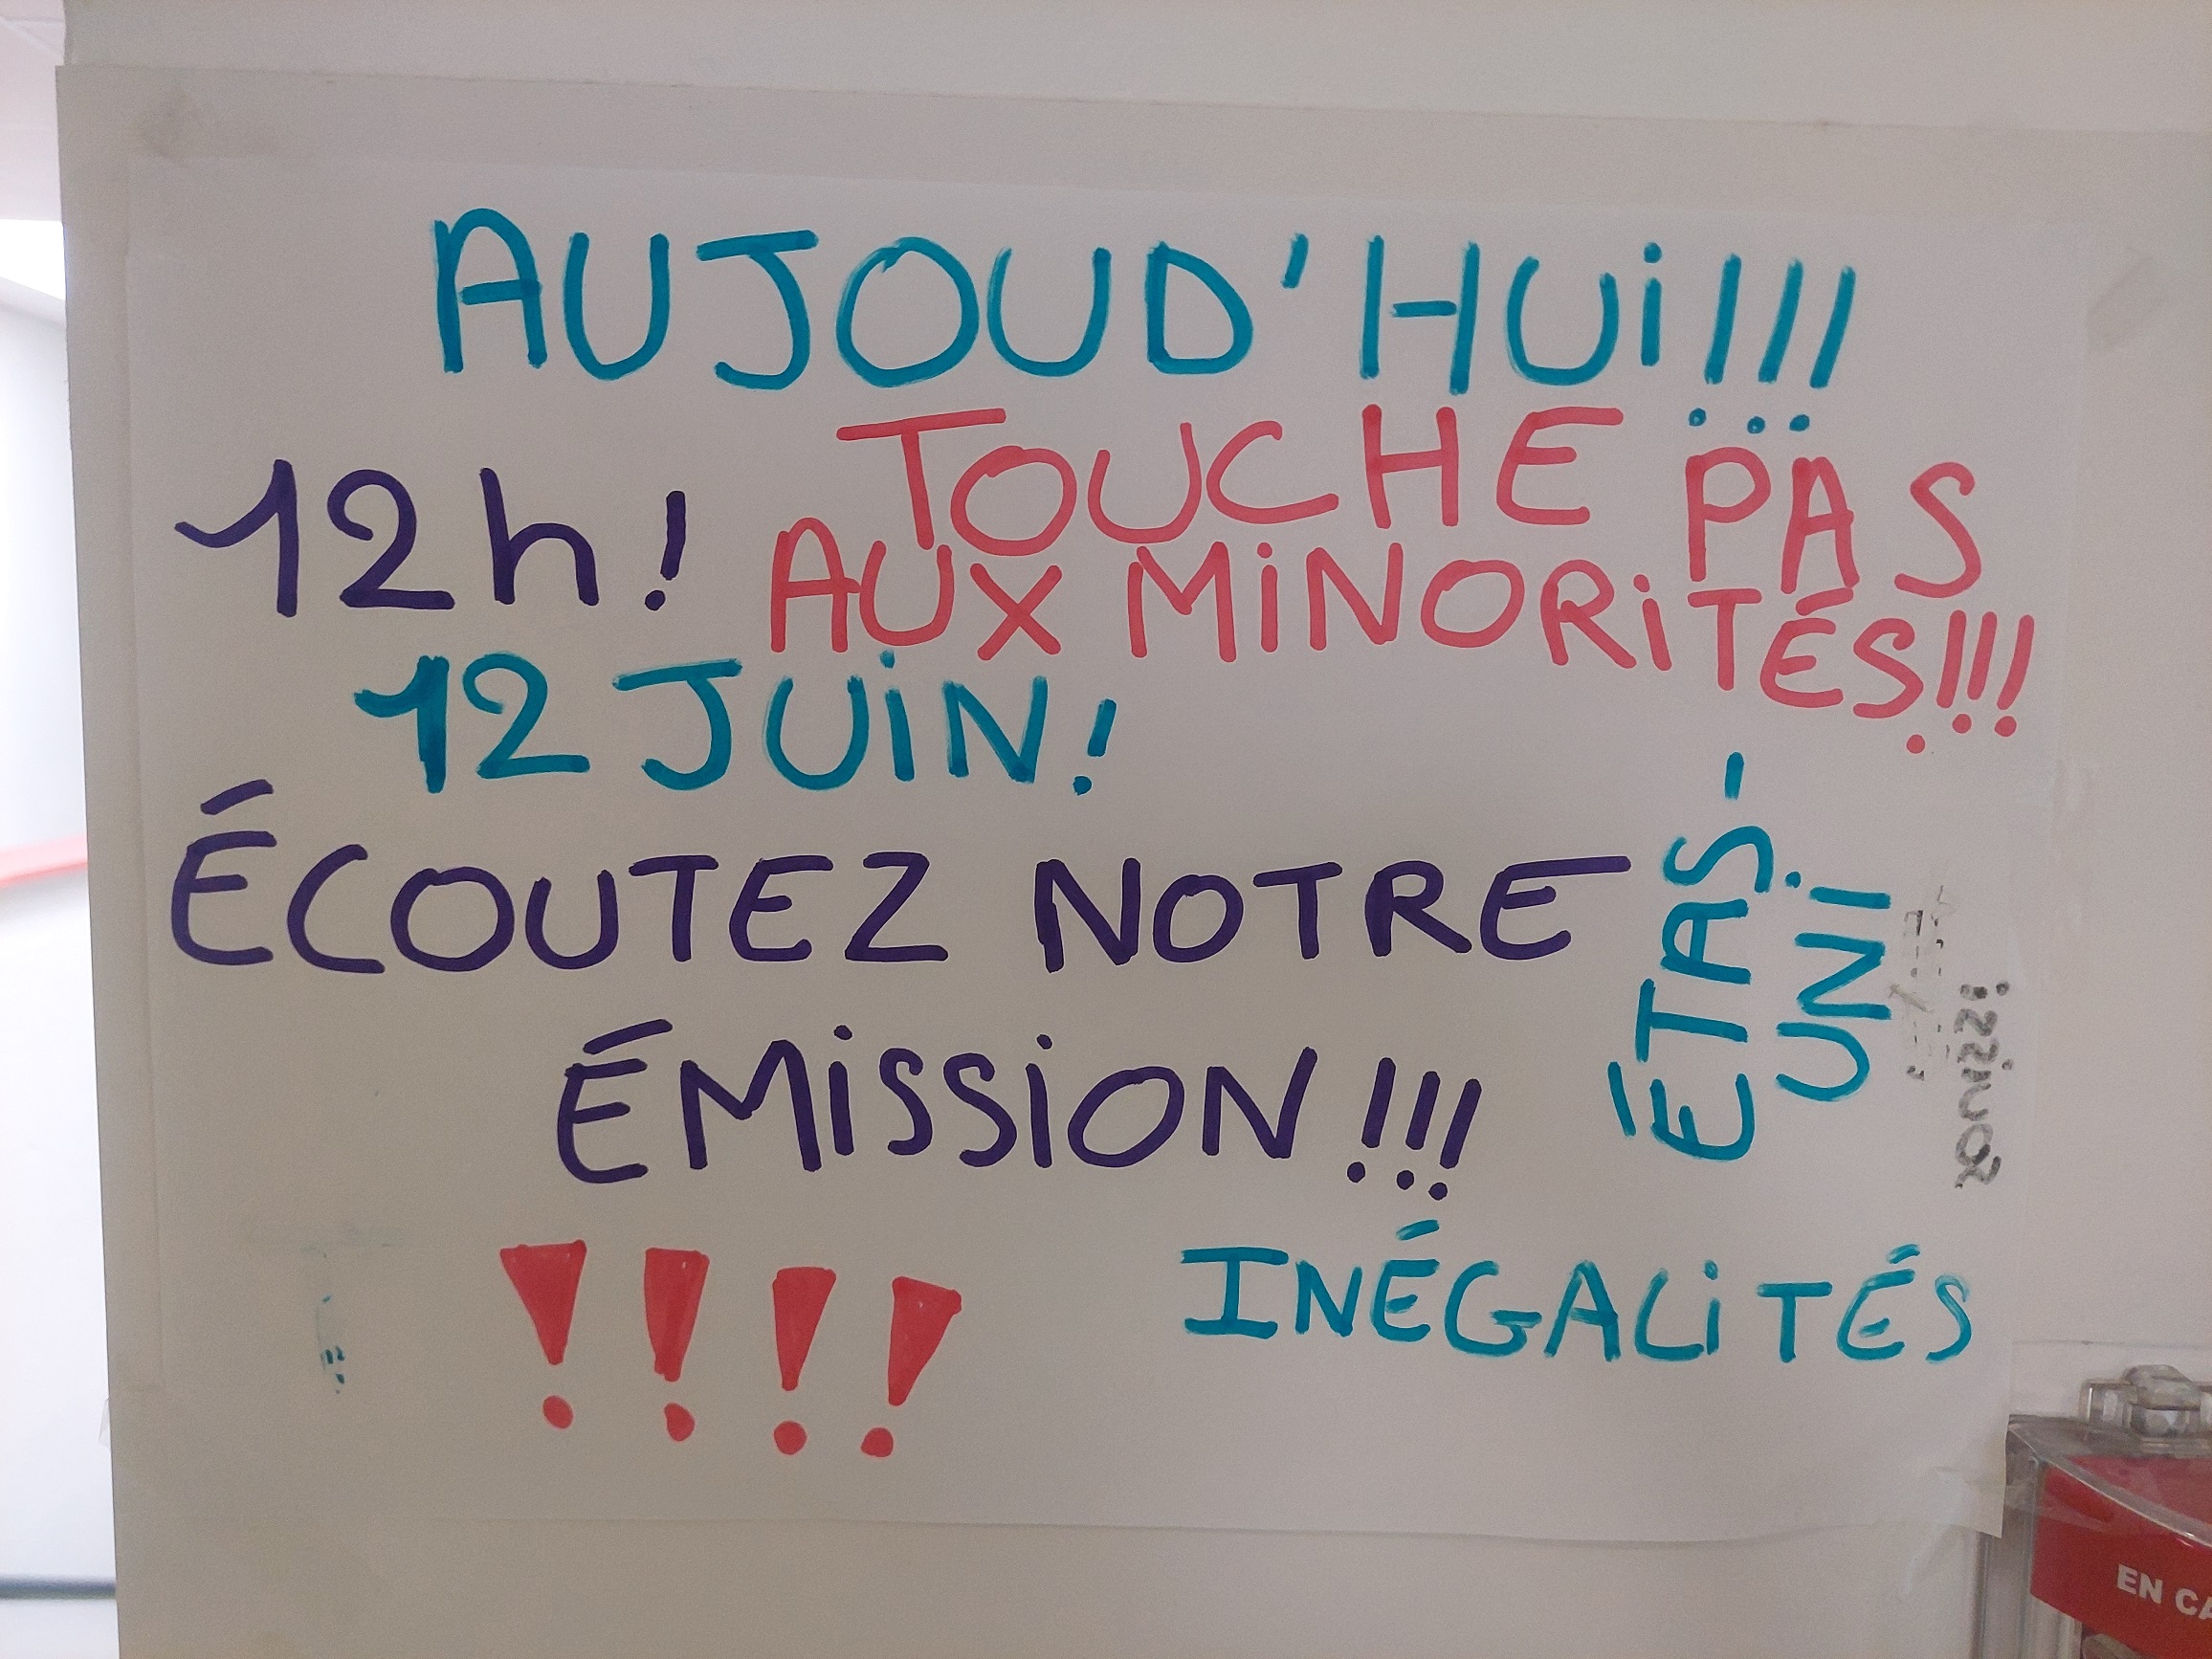 AUJOUD'HUi!!!
12h!
TOUCHE PAS
AUX MiNORiTÉS!!!
12 JUiN!
ÉCOUTEZ NOTRE
ÉMiSSiON!!!
ÉTAS-
UNi
!!!!
INÉGALiTÉS
EN